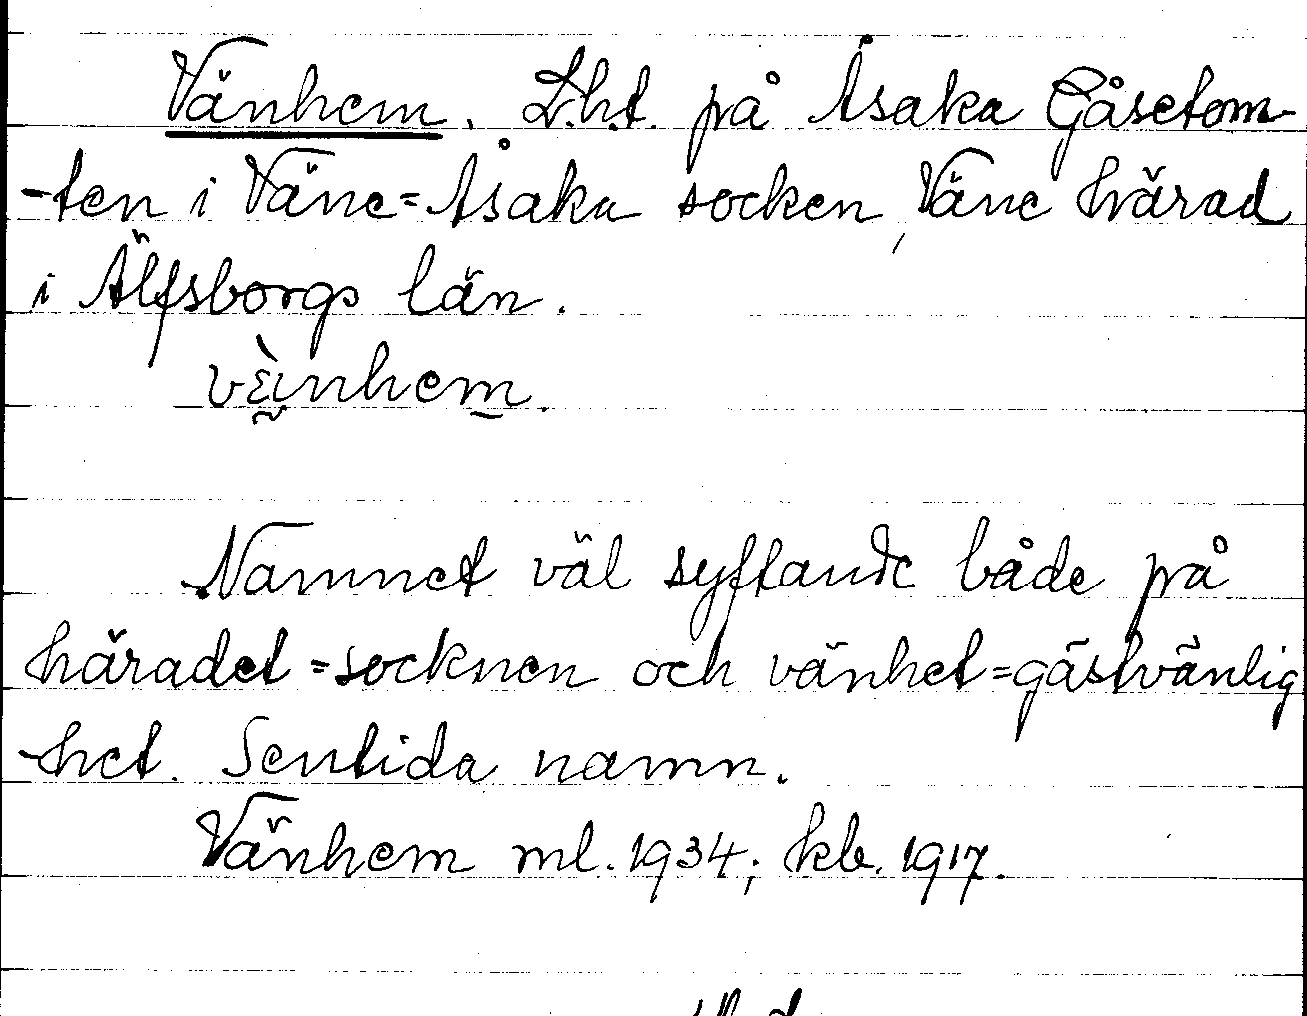 Vänhem. Lht. på Åsaka Gåsetom-
-ten i Väne=Åsaka socken, Väne härad
i Älfsborgs län.
vὲ̰nhem̰.
Namnet väl syftande både på
häradet=socknen och vänhet=gästvänlig
-het. Sentida namn.
Vänhem ml. 1934; kb. 1917.